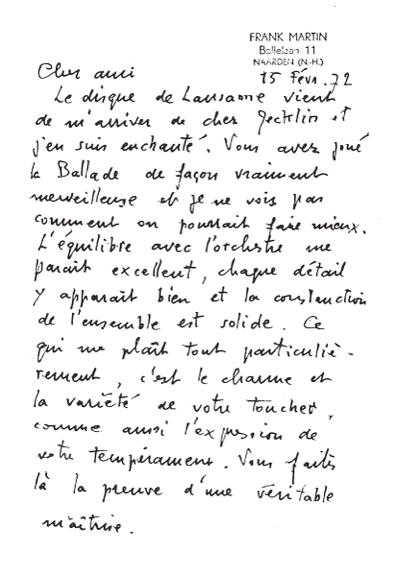 FRANK MARTIN
Bollelaan 11
NAARDEN (N.-H.)
15 Févr. 72
Cher ami
Le disque de Lausanne vient
de m'arriver de chez Jecklin et
j'en suis enchanté. Vous avez joué
la Ballade de façon vraiment
merveilleuse et je ne vois pas
comment on pourrait faire mieux.
L'équilibre avec l'orchestre me
paraît excellent, chaque détail
y apparaît bien et la construction
de l'ensemble est solide. Ce
qui me plaît tout particuliè-
rement, c'est le charme et
la variété de votre toucher,
comme aussi l'expression de
votre tempérament. Vous faites
là la preuve d'une véritable
maîtrise.